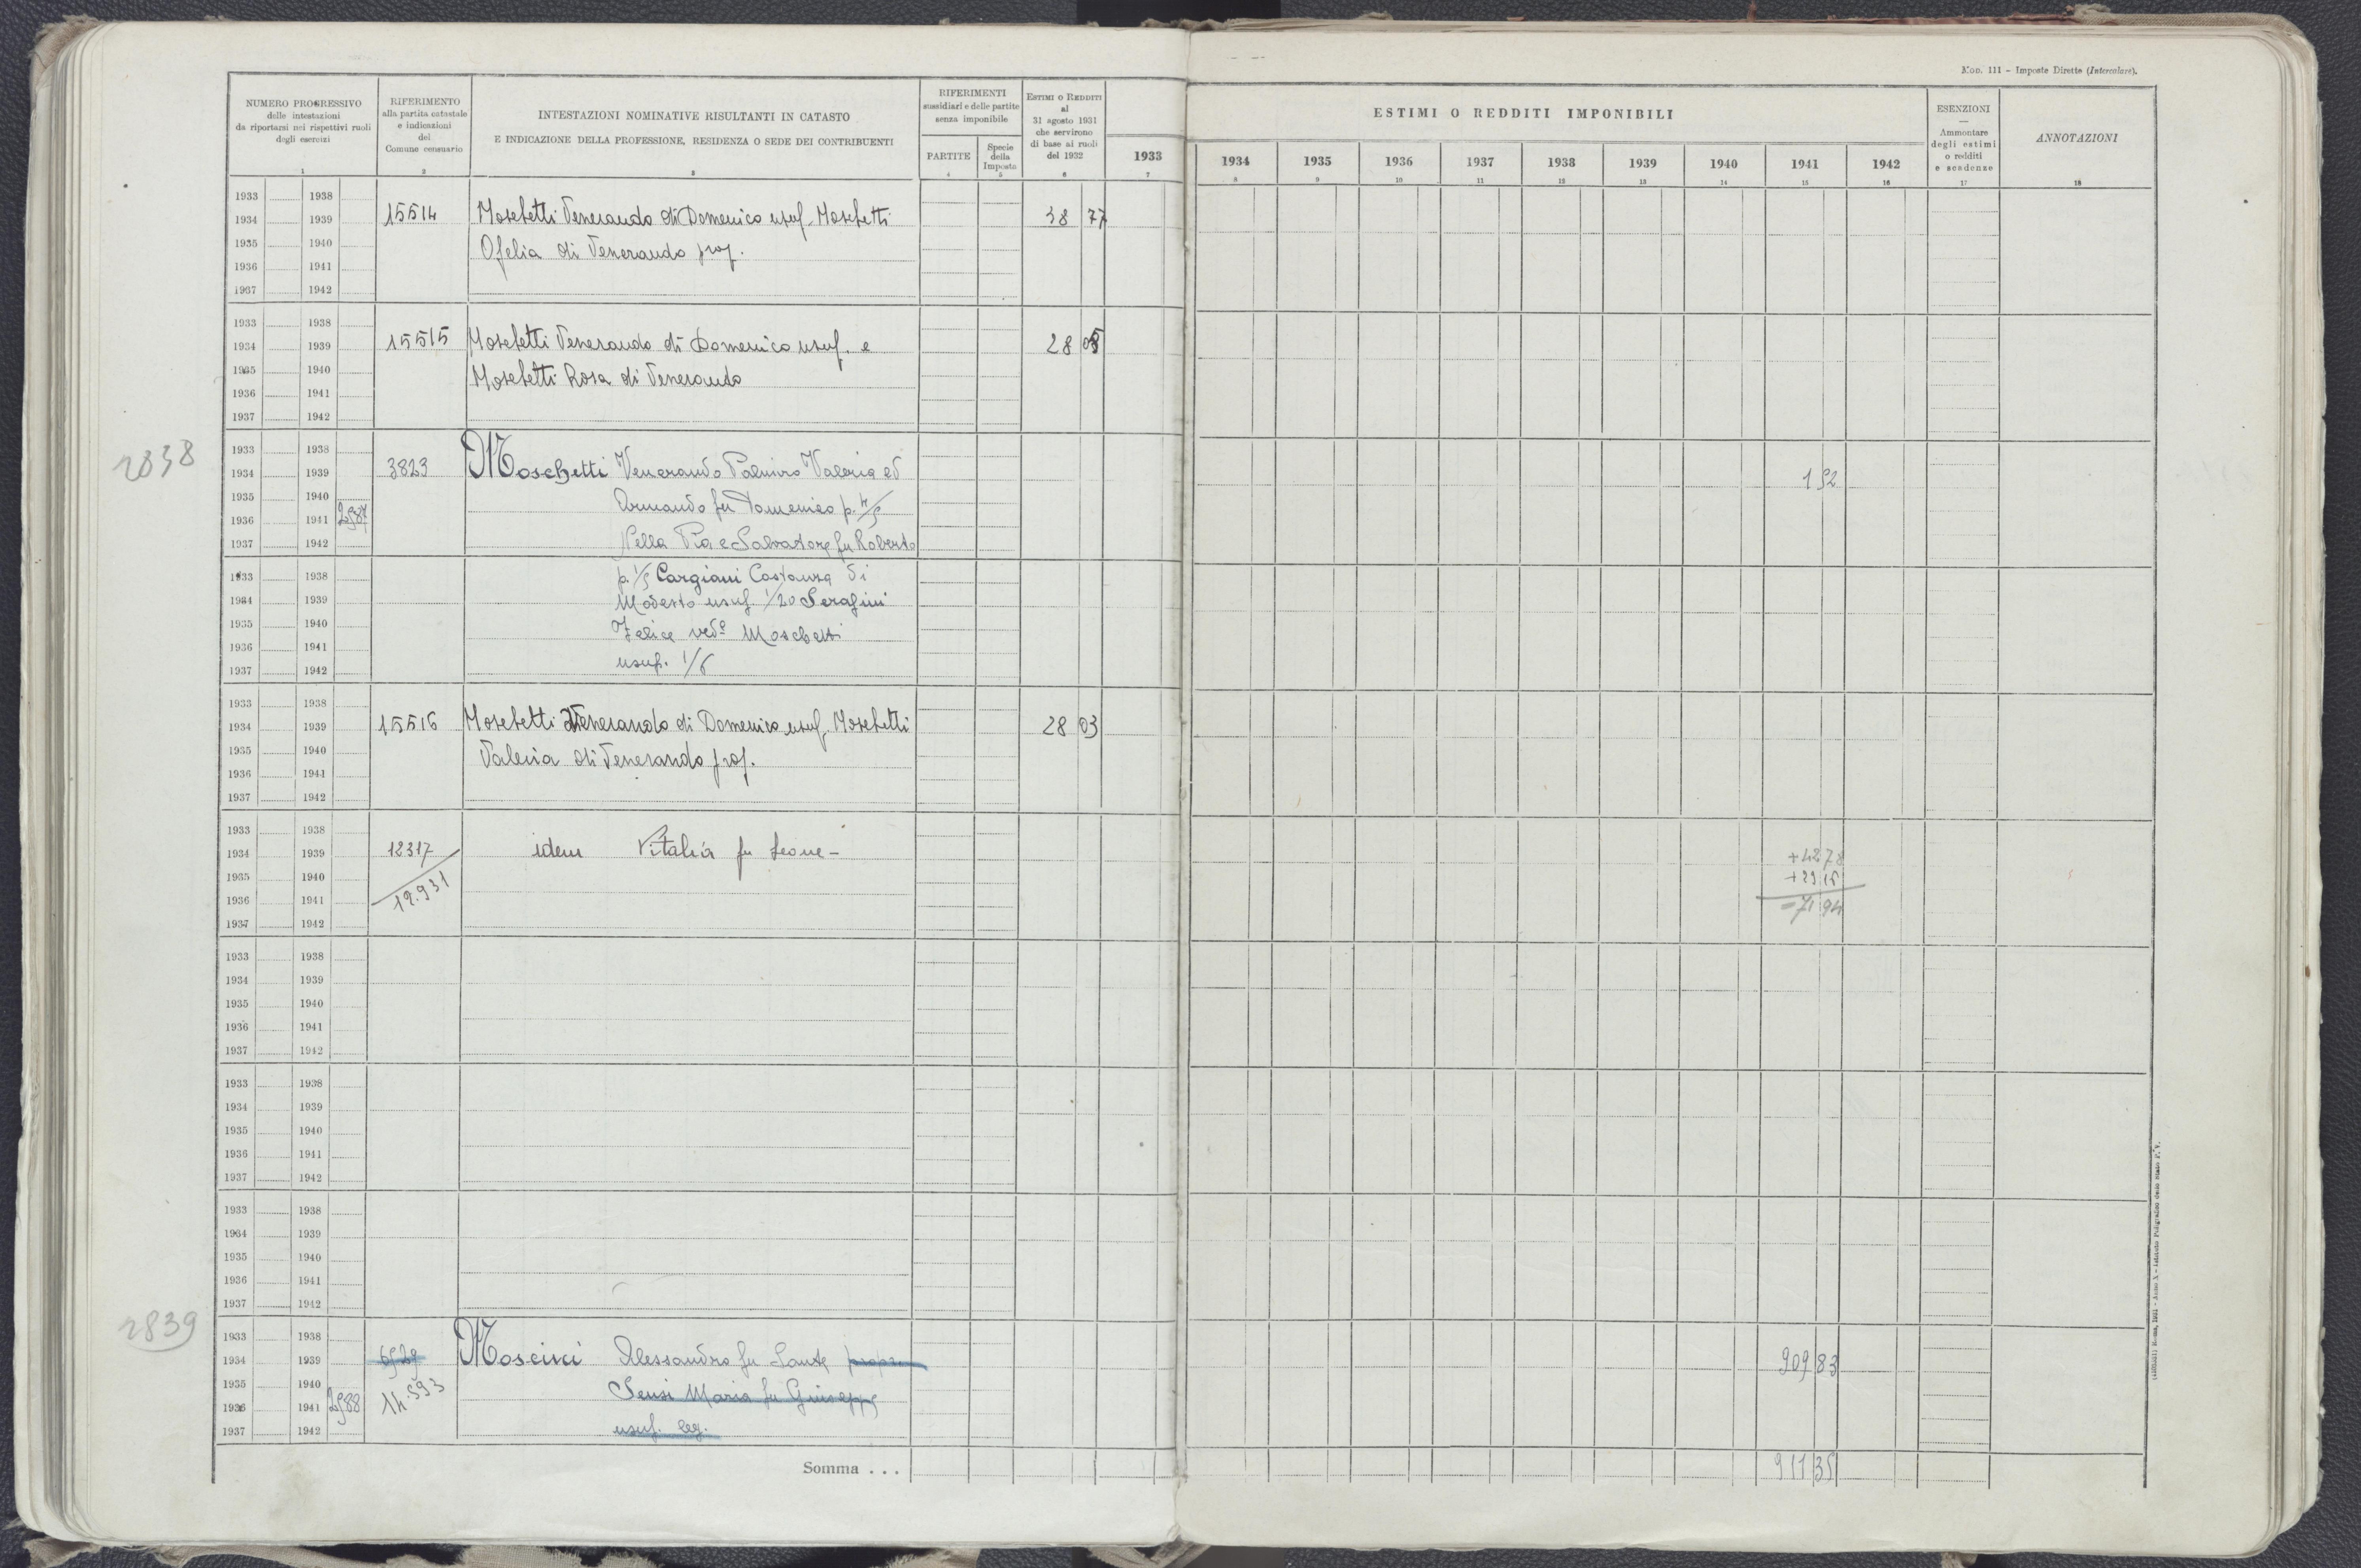 MOD. 111 - Imposte Dirette (Intercalare).
NUMERO PROGRESSIVO
delle intestazioni
da riportarsi nei rispettivi ruoli
degli esercizi
1
RIFERIMENTO
alla partita catastale
e indicazioni
del
Comune censuario
2
INTESTAZIONI NOMINATIVE RISULTANTI IN CATASTO
E INDICAZIONE DELLA PROFESSIONE, RESIDENZA O SEDE DEI CONTRIBUENTI
3
RIFERIMENTI
sussidiari e delle partite
senza imponibile
PARTITE
4
Specie
della
Imposta
5
ESTIMI O REDDITI
al
31 agosto 1931
che servirono
di base ai ruoli
del 1932
6
ESTIMI O REDDITI IMPONIBILI
1933 1934 1935 1936 1937 1938 1939 1940 1941 1942
7 8 9 10 11 12 13 14 15 16
ESENZIONI
—
Ammontare
degli estimi
o redditi
e scadenze
17
ANNOTAZIONI
18
1933 1938
1934 1939 15514 Moschetti Venerando di Domenico usuf. Moschetti 38 77
1935 1940 Ofelia di Venerando prop.
1936 1941
1937 1942
1933 1938
1934 1939 15515 Moschetti Venerando di Domenico usuf. e 28 05
1935 1940 Moschetti Rosa di Venerando
1936 1941
1937 1942
2838
1933 1938
1934 1939 3823 Moschetti Venerando Palmiro Valeria ed 1 52
1935 1940 Armando fu Domenico p. 4/5
1936 1941 2987
1937 1942 Nella Pia e Salvatore fu Roberto
1933 1938 p. 1/5 Cargiani Costanza di
1934 1939 Modesto usuf. 1/20 Serafini
1935 1940 Felice ved.ª Moschetti
1936 1941 usuf. 1/6
1937 1942
1933 1938
1934 1939 15516 Moschetti Venerando di Domenico usuf. Moschetti 28 03
1935 1940 Valeria di Venerando prop.
1936 1941
1937 1942
1933 1938
1934 1939 12317 idem Vitalia fu Leone - +42 78
1935 1940 12.931 +29 16
1936 1941 =71 94
1937 1942
1933 1938
1934 1939
1935 1940
1936 1941
1937 1942
1933 1938
1934 1939
1935 1940
1936 1941
1937 1942
1933 1938
1934 1939
1935 1940
1936 1941
1937 1942
2839
1933 1938
1934 1939 6529 Moscini Alessandro fu Sante propr. 909 83
1935 1940 14.593 Sensi Maria fu Giuseppe
1936 1941 2988
1937 1942 usuf. leg.
Somma . . . 911 35